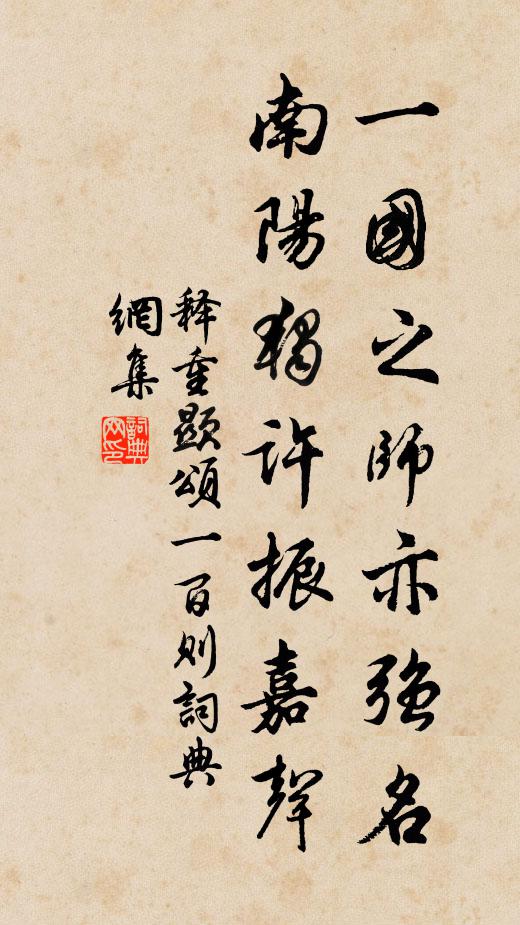 一國之師亦强名
南陽獨許振嘉聲
释重顯頌一百則詞典
網集
詞典網印